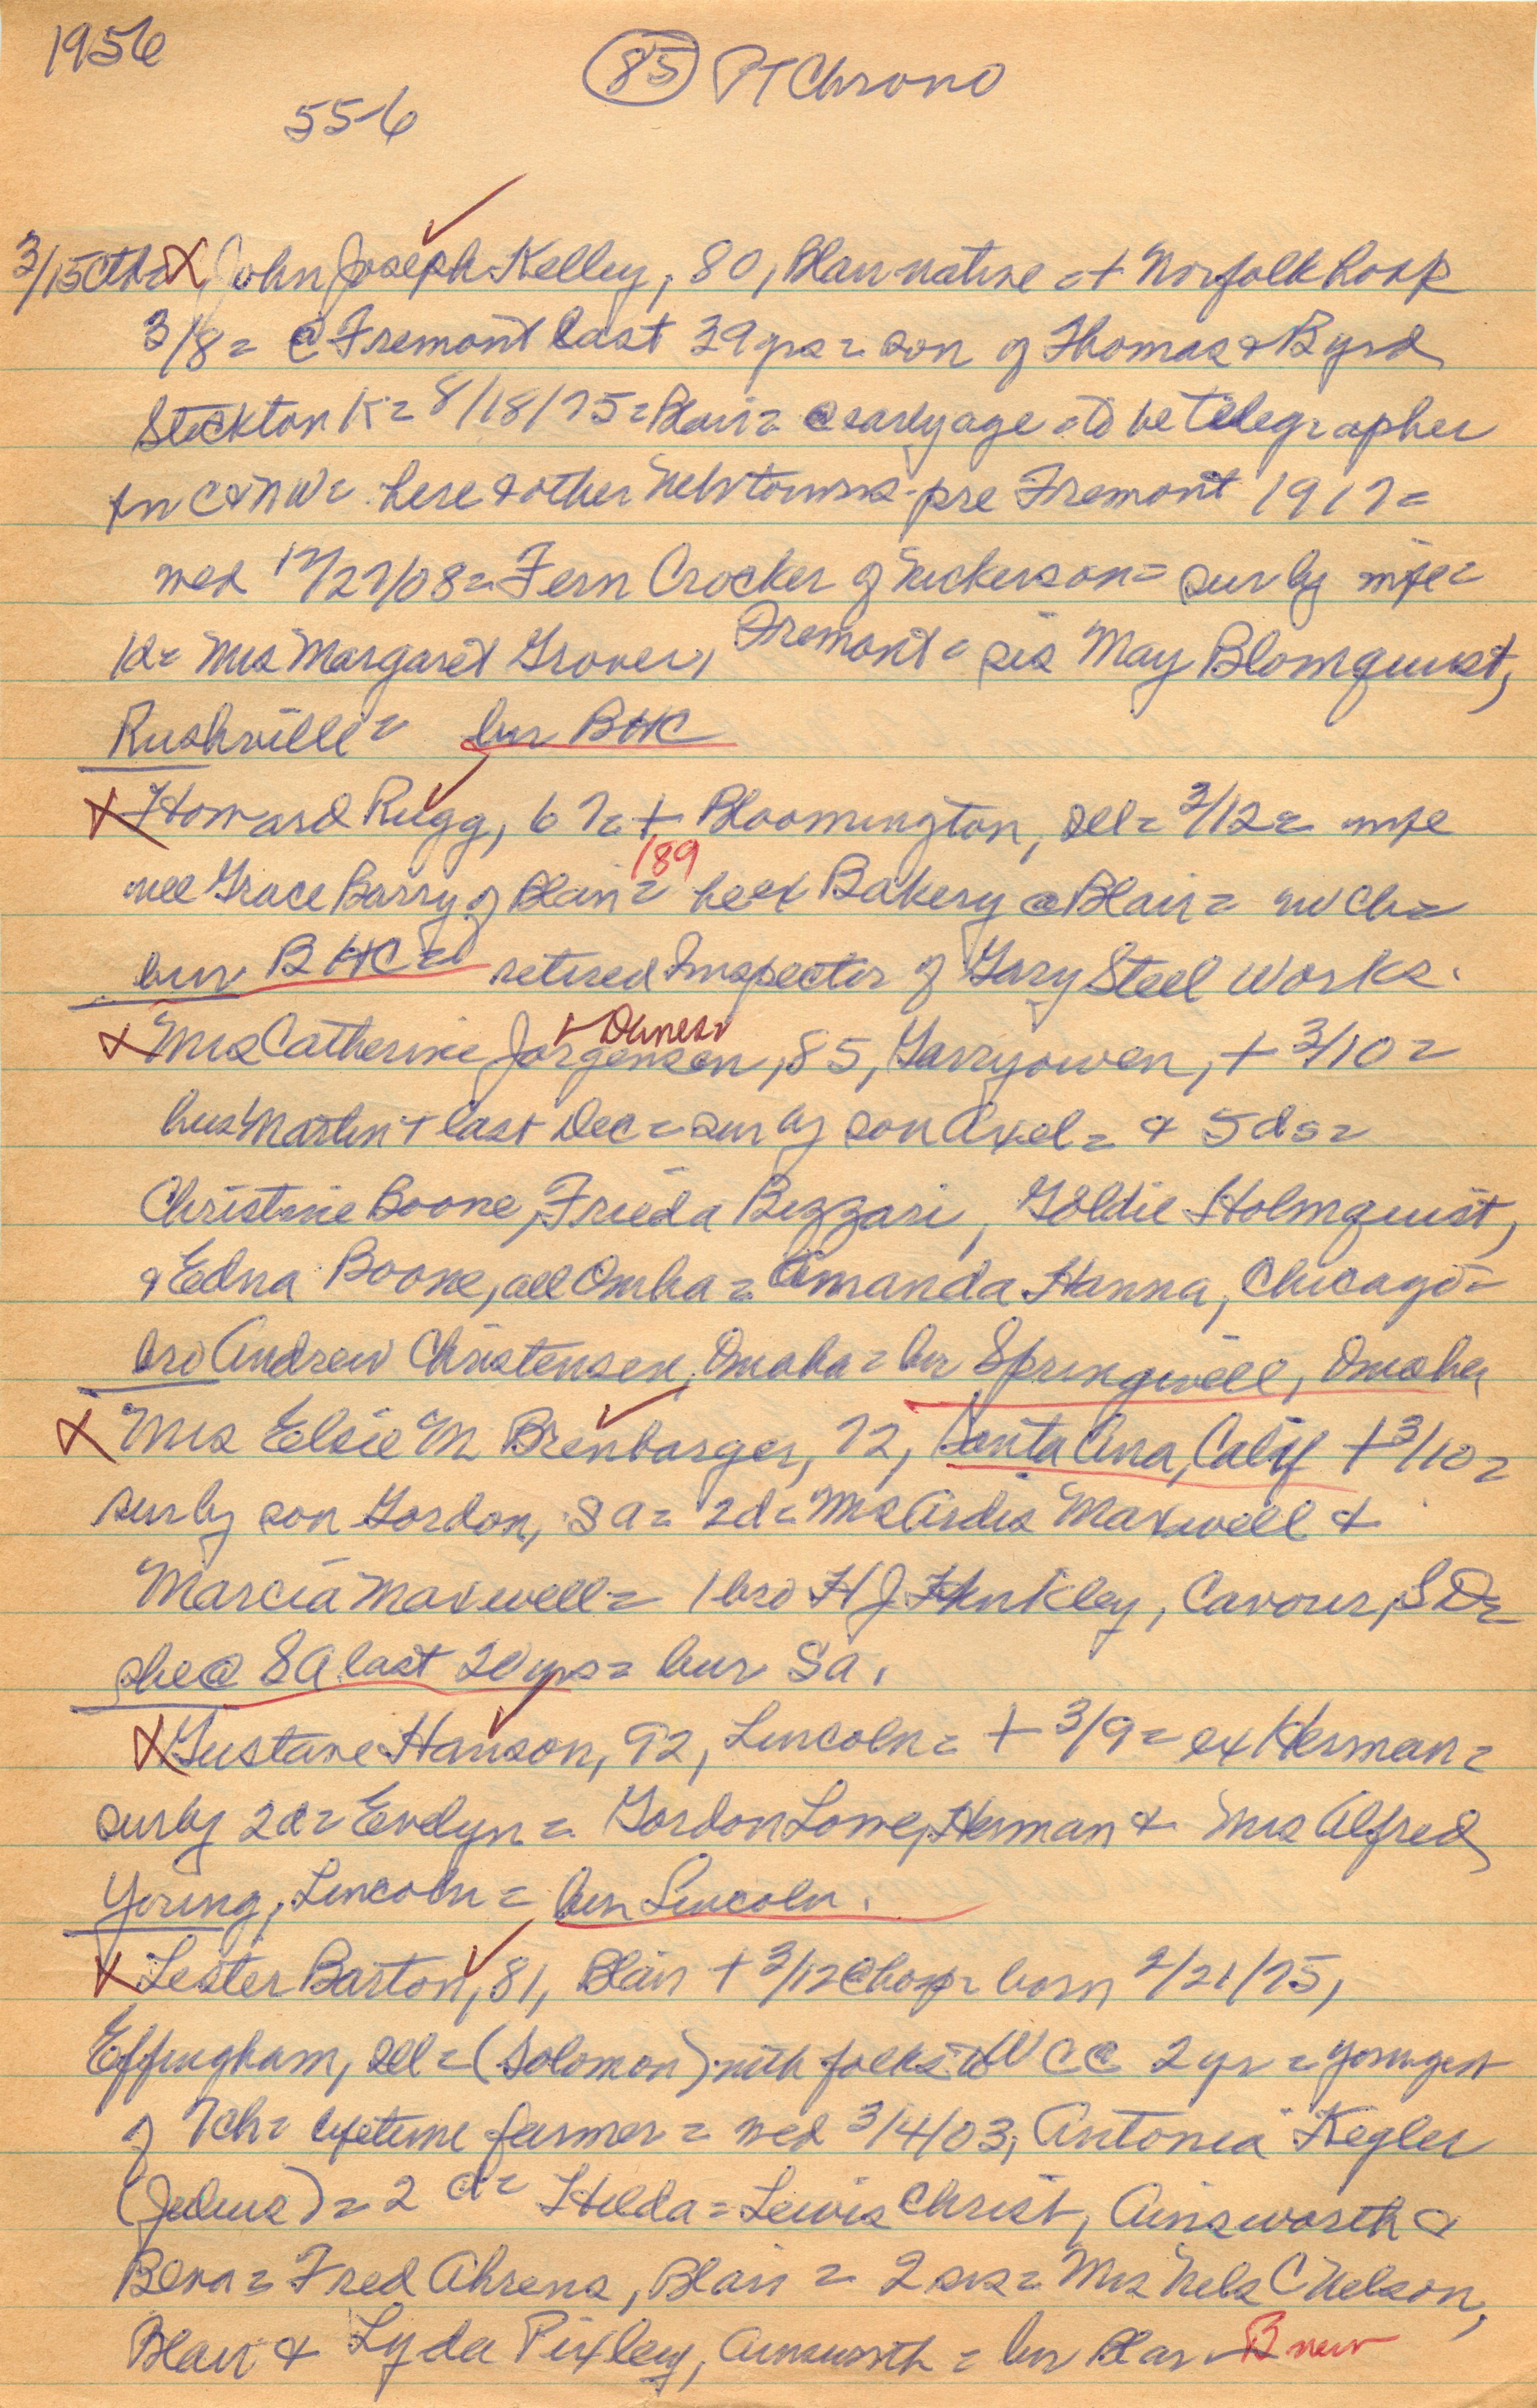 1956
85 PT Chrono
556
3/15 Oth= X John Joseph Kelley, 80, Blair native + Norfolk hosp
3/8= @ Fremont last 39 yrs= son of Thomas & Byrd
Stockton K= 8/18/75= Blair= @ early age to be telegrapher
for C&NW= here & other Neb towns pre Fremont 1917=
wed 12/27/08= Fern Crocker of Nickerson= sur by wife=
1d= Mrs Margaret Grover, Fremont= sis May Blomquist,
Rushville= bur BHC
X Howard Rugg, 67= + Bloomington, Ill= 3/12= wife
189
nee Grace Barry of Blair= he ex Bakery @ Blair= no ch=
bur BHC= retired Inspector of Gary Steel Works.
Dinesv
X Mrs Catherine Jorgensen, 85, Garryowen, + 3/10=
hus Martin + last Dec= sur by son Axel= & 5 ds=
Christine Boone, Frieda Bizzari, Goldie Holmquist,
& Edna Boone, all Omha= Amanda Hanna, Chicago=
bro Andrew Christensen, Omaha= bur Springwell, Omaha
X Mrs Elsie M Brenbarger, 72, Santa Ana, Calif + 3/10=
sur by son Gordon, Sa= 2d= Mrs Ardis Maxwell &
Marcia Maxwell= 1 bro H J Hinkley, Cavour, SD=
she @ SA last 20 yrs= bur Sa.
X Gustave Hanson, 92, Lincoln= + 3/9= ex Herman=
sur by 2d= Evelyn= Gordon Lowe, Herman & Mrs Alfred
Young, Lincoln= bur Lincoln.
X Lester Barton, 81, Blair + 3/12 @ hosp= born 2/21/75,
Effingham, Ill= (Solomon) with folks to WC @ 2 yr= youngest
of 7ch= lifetime farmer= wed 3/4/03, Antonia Kegler
(Julius)= 2 d= Hilda= Lewis Christ, Ainsworth &
Bena= Fred Ahrens, Blair= 2 sis= Mrs Nels C Nelson,
Blair & Lyda Pixley, Ainsworth= bur Blair B new